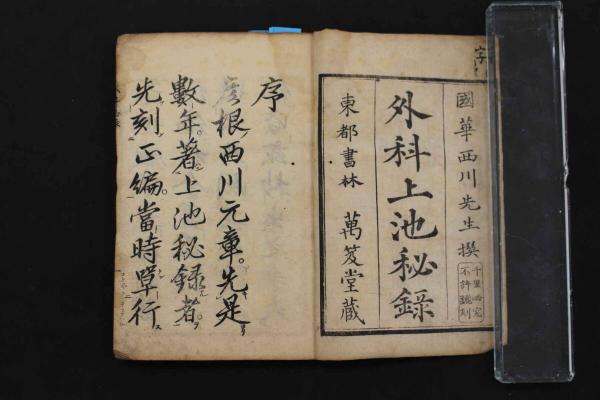 國華西川先生撰
千里必究
不許翻刻
外科上池秘錄
東都書林 萬笈堂藏
序
彥根西川元章。先是
數年。著上池秘錄者。
先刻正編。當時單行